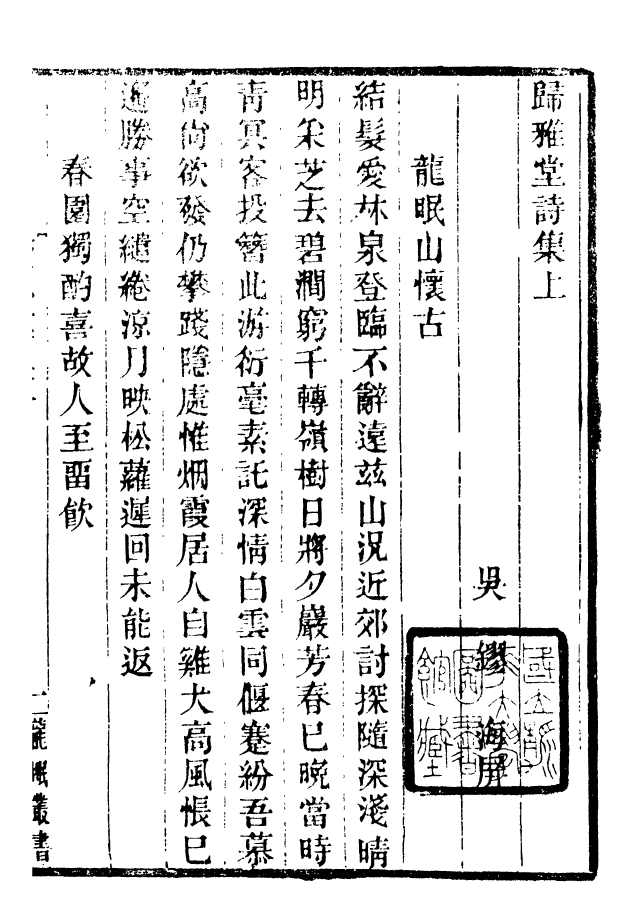 歸雅堂詩集上
吳 鏐 海屏
龍眠山懷古
結髮愛林泉登臨不辭遠茲山況近郊討探隨深淺晴
明采芝去碧澗窮千轉嶺樹日將夕巖芳春已晚當時
青冥客投簪此游衍毫素託深情白雲同偃蹇紛吾慕
高尙欲發仍攀踐隱處惟烟霞居人自雞犬高風悵已
遙勝事空繾綣涼月映松蘿遲回未能返
春園獨酌喜故人至畱飮
龍眠叢書
國立
圖書
館藏